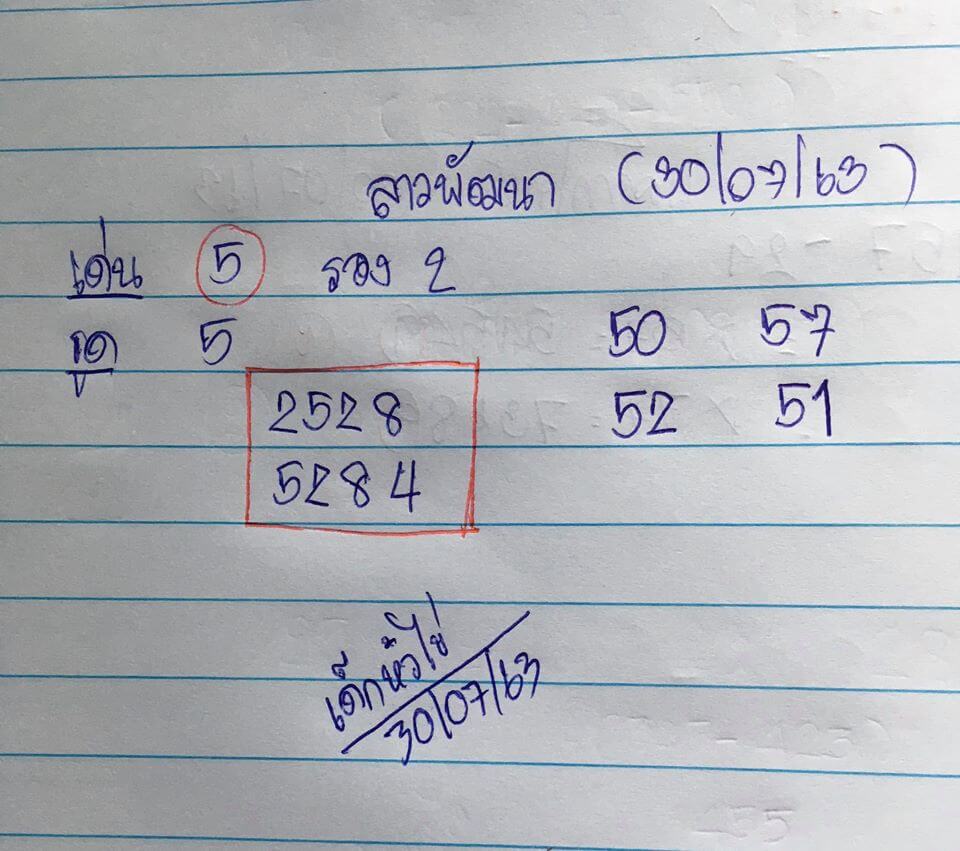 ลาวพัฒนา (30/07/63)
เด่น 5 รอง 2
รูด 5 50 57
2528 52 51
5284
เด็กหัวไข่
30/07/63